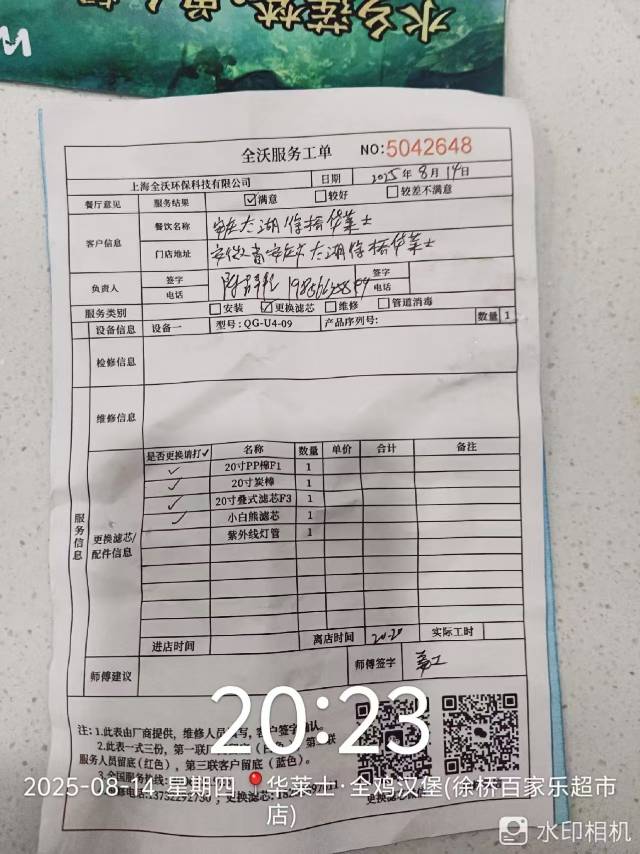 水乡莲林·
全沃服务工单 NO:5042648
上海全沃环保科技有限公司 日期 2025年8月14日
餐厅意见 服务结果 ☑满意 □较好 □较差不满意
客户信息 餐饮名称 太湖徐桥华莱士
门店地址 太湖徐桥华莱士
负责人 签字 签字
电话 电话
服务类别 □安装 ☑更换滤芯 □维修 □管道消毒
设备信息 设备一 型号:QG-U4-09 产品序列号: 数量 1
检修信息
维修信息
服务信息
更换滤芯/配件信息
是否更换请打✓ 名称 数量 单价 合计 备注
✓ 20寸PP棉F1 1
✓ 20寸炭棒 1
✓ 20寸叠式滤芯F3 1
✓ 小白熊滤芯 1
紫外线灯管 1
进店时间 离店时间 20-20 实际工时
师傅建议 师傅签字
注: 1.此表由厂商提供, 维修人员填写, 客户签字确认。
2.此表一式三份, 第一联厂
服务人员留底(红色), 第三联客户留底(蓝色)。
3.全国服务热线:
更换滤芯:
20:23
2025-08-14 星期四 华莱士·全鸡汉堡(徐桥百家乐超市店)
水印相机